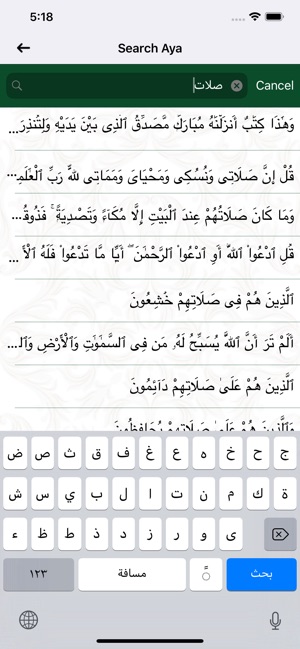 5:18
Search Aya
صلات
Cancel
وَهَٰذَا كِتَٰبٌ أَنزَلْنَٰهُ مُبَارَكٌ مُّصَدِّقُ ٱلَّذِى بَيْنَ يَدَيْهِ وَلِتُنذِرَ...
قُلْ إِنَّ صَلَاتِى وَنُسُكِى وَمَحْيَاىَ وَمَمَاتِى لِلَّهِ رَبِّ ٱلْعَٰلَمِ...
وَمَا كَانَ صَلَاتُهُمْ عِندَ ٱلْبَيْتِ إِلَّا مُكَآءً وَتَصْدِيَةً ۚ فَذُوقُ...
قُلِ ٱدْعُوا۟ ٱللَّهَ أَوِ ٱدْعُوا۟ ٱلرَّحْمَٰنَ ۖ أَيًّا مَّا تَدْعُوا۟ فَلَهُ ٱلْأَ...
ٱلَّذِينَ هُمْ فِى صَلَاتِهِمْ خَٰشِعُونَ
أَلَمْ تَرَ أَنَّ ٱللَّهَ يُسَبِّحُ لَهُۥ مَن فِى ٱلسَّمَٰوَٰتِ وَٱلْأَرْضِ وَٱل...
ٱلَّذِينَ هُمْ عَلَىٰ صَلَاتِهِمْ دَآئِمُونَ
وَٱلَّذِينَ هُمْ عَلَىٰ صَلَاتِهِمْ يُحَافِظُونَ
ج ح خ ه ع غ ف ق ث ص ض
ة ك م ن ت ا ل ب ي س ش
ى و ر ز د ذ ط ظ ء
١٢٣ مسافة بحث